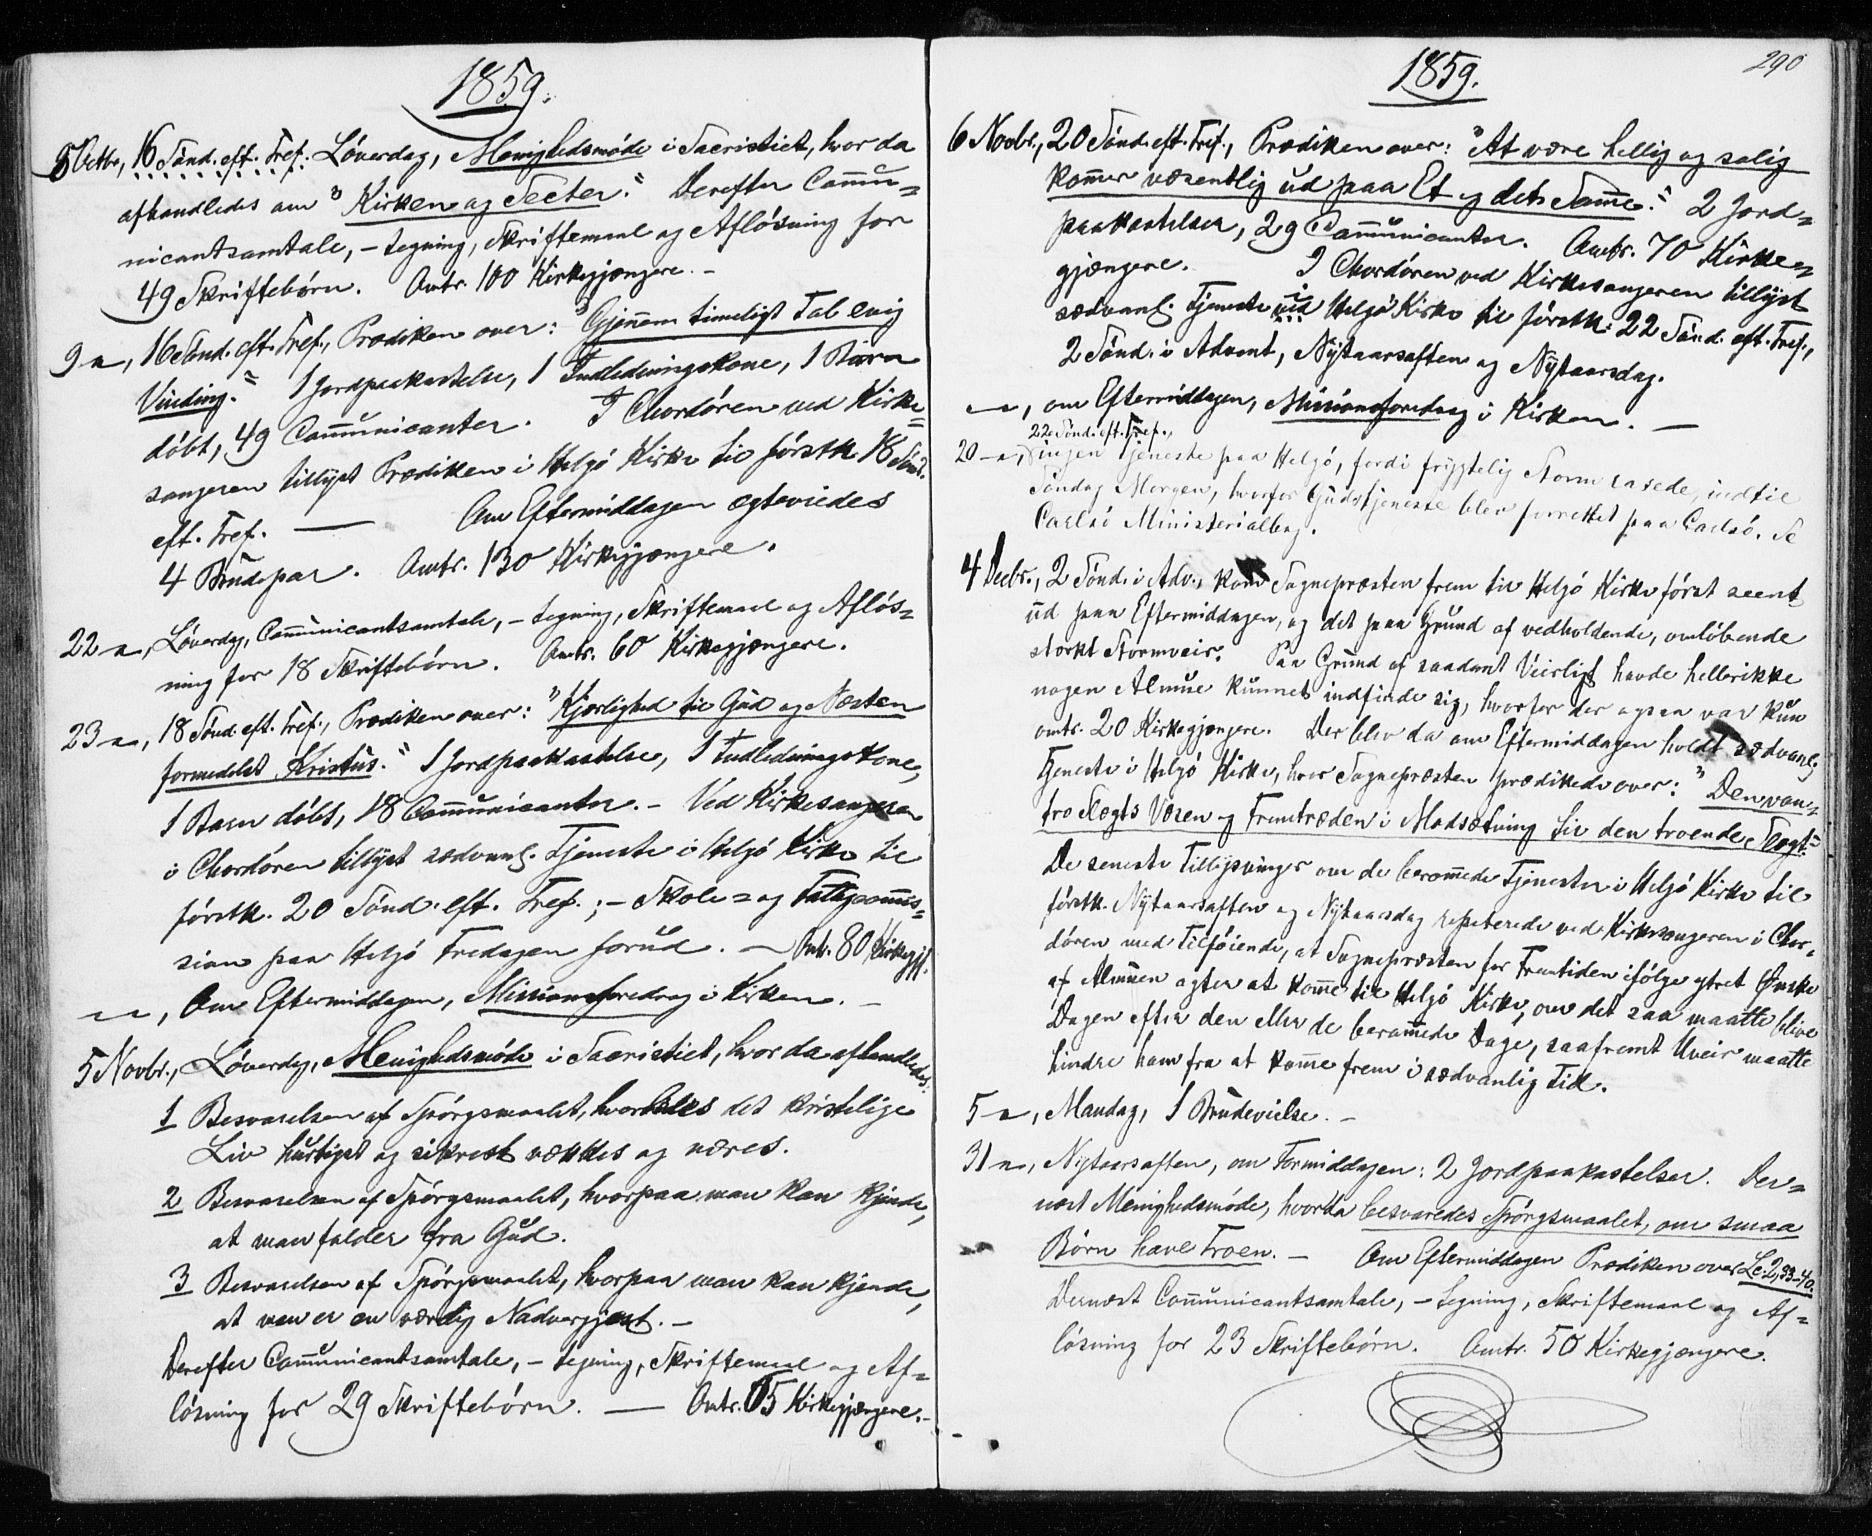 1859.
8 Octbr, 16 Sønd. eft. Tref. Løverdag, Menighedsmøde i Sacristiet, hvor da
afhandledes om "Kirken og Secter." Derefter Commu=
nicantsamtale, – tegning, Skriftemaal og Afløsning for
49 Skriftebørn. Omtr. 100 Kirkegjængere. –
9 –, 16 Sønd. eft. Tref., Prædiken over: "Gjennem timeligt Tab evig
Vinding." 1 Jordpaakastelse, 1 Indledningskone, 1 Barn
døbt, 49 Communicanter. I Chordøren ved Kirke=
sangeren tillyst Prædiken i Helgø Kirke til førstk. 18 Sønd.
eft. Tref. — Om Eftermiddagen ægteviedes
4 Brudepar. Omtr. 130 Kirkegjængere.
22 –, Løverdag, Communicantsamtale, – tegning, Skriftemaal og Afløs=
ning for 18 Skriftebørn. Omtr. 60 Kirkegjængere.
23 –, 18 Sønd. eft. Tref., Prædiken over: "Kjærlighed til Gud og Næsten
formedelst Kristus." 1 Jordpaakastelse, 1 Indledningskone,
1 Barn døbt, 18 Communicanter. – Ved Kirkesangeren
i Chordøren tillyst sædvanl. Tjeneste i Helgø Kirke til
førstk. 20 Sønd. eft. Tref.; – Skole= og Fattigcommis=
sion paa Helgø Fredagen forud. — Omtr. 80 Kirkegjg.
– –, Om Eftermiddagen, Missionsforedrag i Kirken. –
5 Novbr., Løverdag, Menighedsmøde i Sacristiet, hvor da afhandledes:
1 Besvarelsen af Spørgsmaalet, hvorledes det kristelige
Liv hurtigst og sikrest vækkes og næres.
2 Besvarelsen af Spørgsmaalet, hvorpaa man kan kjende,
at man falder fra Gud.
3 Besvarelsen af Spørgsmaalet, hvorpaa man kan kjende,
at man er en værdig Nadvergjæst. –
Derefter Communicantsamtale, – tegning, Skriftemaal og Af=
løsning for 29 Skriftebørn. — Omtr. 65 Kirkegjængere. –
290
1859.
6 Novbr., 20 Sønd. eft. Tref., Prædiken over: "At være hellig og salig
kommer væsentlig ud paa Et og det Samme." 2 Jord=
paakastelser, 29 Communicanter. Omtr. 70 Kirke=
gjængere. I Chordøren ved Kirkesangeren tillyst
sædvanl. Tjeneste ved Helgø Kirke til førstk. 22 Sønd. eft. Tref.,
2 Sønd. i Advent, Nytaarsaften og Nytaarsdag.
– –, om Eftermiddagen, Missionsforedrag i Kirken. —
22 Sønd. eft. Tref.,
20 –, ingen Tjeneste paa Helgø, fordi frygtelig Storm rasede indtil
Søndag Morgen, hvorfor Gudstjeneste blev forrettet paa Carlsø. Se
Carlsø Ministerialbog.
4 Decbr., 2 Sønd. i Adv., kom Sognepræsten frem til Helgø Kirke først seent
ud paa Eftermiddagen, og det paa Grund af vedholdende, omløbende
stærkt Stormveir. Paa Grund af saadant Veirligt havde heller ikke
nogen Almue kunnet indfinde sig, hvorfor der ogsaa var kun
omtr. 20 Kirkegjængere. Der blev da om Eftermiddagen holdt sædvanlig
Tjeneste i Helgø Kirke, hvor Sognepræsten prædikede over: "Den van=
tro Slægts Væsen og Fremtræden i Modsætning til den troende Slægt."
De seneste Tillysninger om de berammede Tjenester i Helgø Kirke til
førstk. Nytaarsaften og Nytaarsdag repeterede ved Kirkesangeren i Chor=
døren med Tilføiende, at Sognepræsten for Fremtiden ifølge ytret Ønske
af Almuen agter at komme til Helgø Kirke, om det saa maatte blive
Dagen efter den eller de berammede Dage, saafremt Uveir maatte
hindre ham fra at komme frem i sædvanlig Tid.
5 –, Mandag, 1 Brudevielse. –
31 –, Nytaarsaften, om Formiddagen: 2 Jordpaakastelser. Der=
næst Menighedsmøde, hvor da besvaredes Spørgsmaalet, om smaa
Børn have Troen. – Om Eftermiddagen Prædiken over Lc. 2, 33–40.
Dernæst Communicantsamtale, – tegning, Skriftemaal og Af=
løsning for 23 Skriftebørn. Omtr. 50 Kirkegjængere.